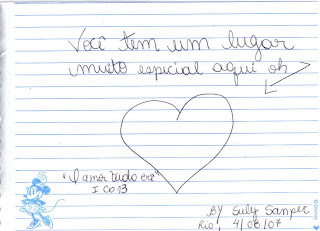 Você tem um lugar
muito especial aqui oh
"O amor tudo crê"
I Co 13
BY Suly Sanper
Rio, 4/08/07